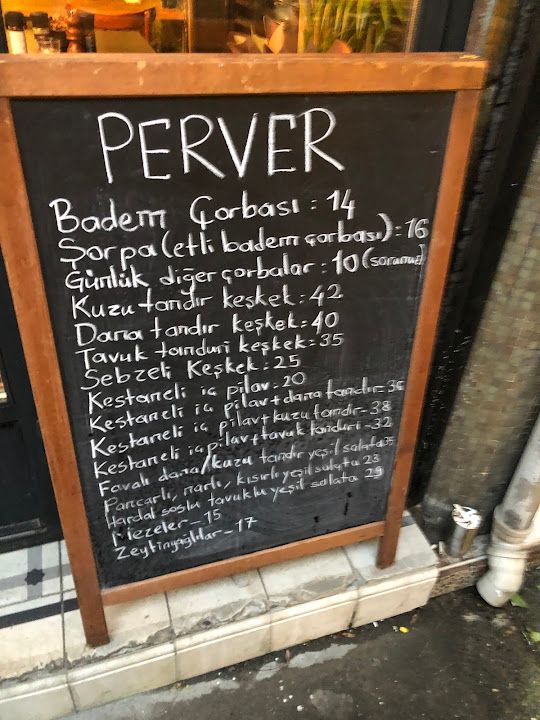 PERVER
Badem Çorbası : 14
Şorpa (etli badem çorbası) : 16
Günlük diğer çorbalar : 10 (sorunuz)
Kuzu tandır keşkek : 42
Dana tandır keşkek : 40
Tavuk tanduri keşkek : 35
Sebzeli Keşkek : 25
Kestaneli iç pilav : 20
Kestaneli iç pilav+dana tandır - 36
Kestaneli iç pilav+kuzu tandır - 38
Kestaneli iç pilav+tavuk tanduri - 32
Favalı dana/kuzu tandır yeşil salata 35
Pancarlı, narlı, kısırlı yeşil salata 23
Hardal soslu tavuklu yeşil salata 29
Mezeler - 15
Zeytinyağlılar - 17